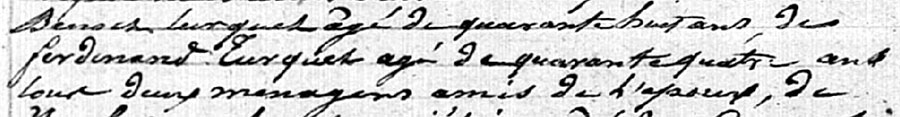 Benoit turquet agé de quarante huit ans, de
ferdinand Turquet agé de quarante quatre ans
tous deux menagers amis de l'epoux, de